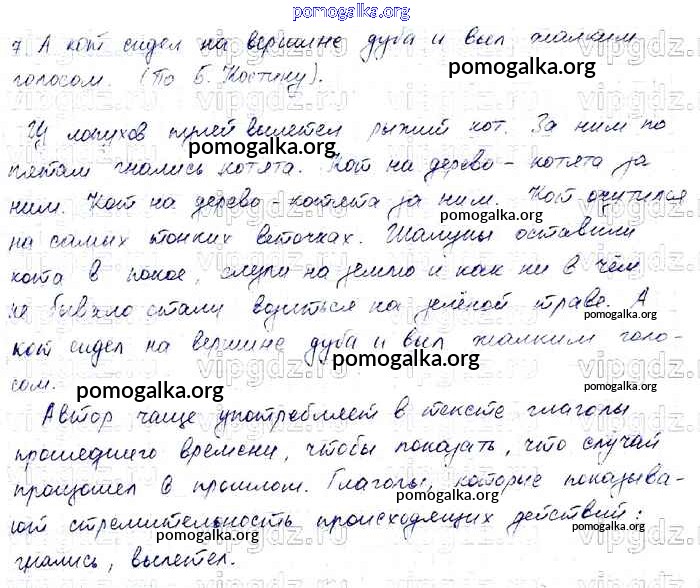 pomogalka.org
7. А кот сидел на вершине дуба и выл жалким
голосом. (По Б. Костину).
pomogalka.org
Из лопухов пулей вылетел рыжий кот. За ним по
pomogalka.org
пятам гнались котята. Кот на дерево - котята за
ним. Кот на дерево - котята за ним. Кот очутился
pomogalka.org
на самых тонких веточках. Шалуны оставили
кота в покое, слезли на землю и как ни в чём
не бывало стали возиться на зелёной траве. А
pomogalka.org
кот сидел на вершине дуба и выл жалким голо-
pomogalka.org
сом.
pomogalka.org
Автор чаще употребляет в тексте глаголы
прошедшего времени, чтобы показать, что случай
произошел в прошлом. Глаголы, которые показыва-
pomogalka.org
ют стремительность происходящих действий:
pomogalka.org
гнались, вылетел.
vipgdz.ru